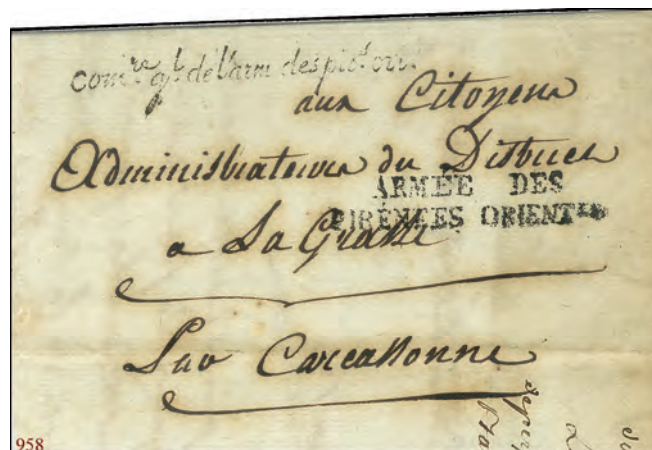 com.re g.l de l'arm des pi.s or.
aux Citoyens
Administrateurs du District
ARMÉE DES
PIRÉNÉES ORIENT.LES
a La Grasse
Par Carcassonne
958